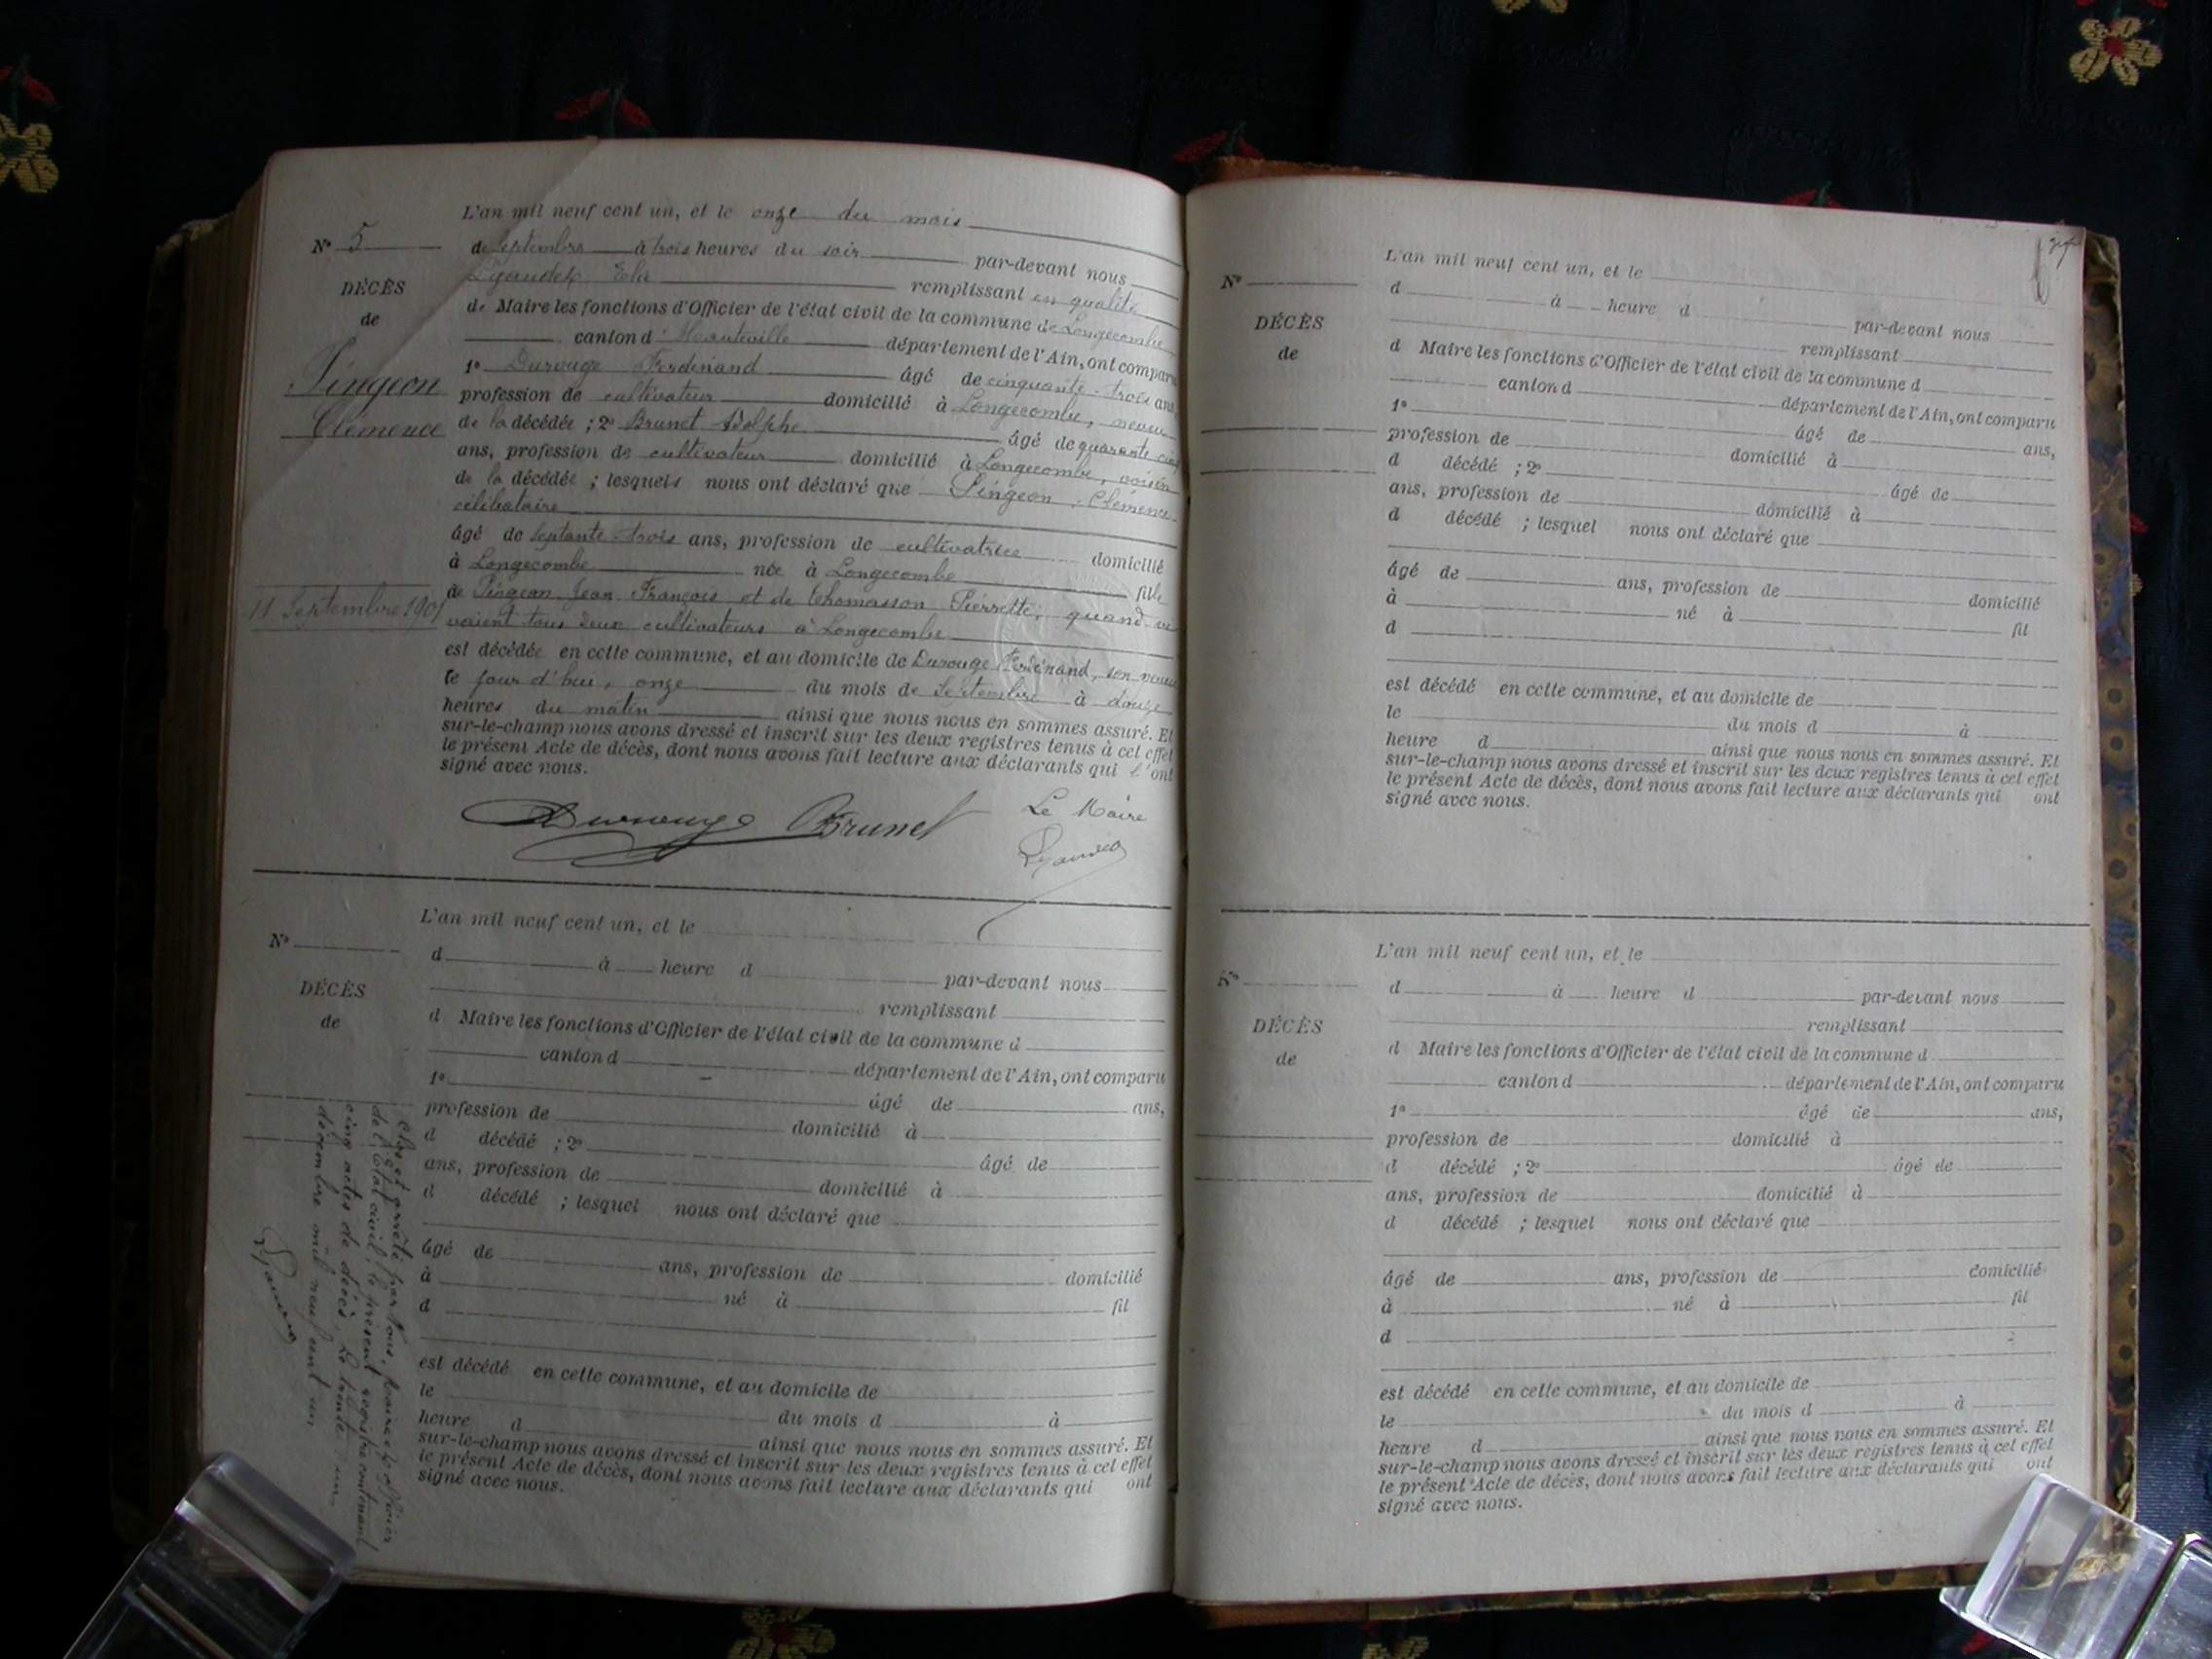 L'an mil neuf cent un, et le onze du mois
N° 5
de Septembre à trois heures du soir par-devant nous
Lyaudet Elie remplissant en qualité
DÉCÈS
de
Pingeon
Clémence
11 Septembre 1901
de Maire les fonctions d'Officier de l'état civil de la commune de Longecombe
canton d'Hauteville département de l'Ain, ont comparu
1° Durouge Ferdinand âgé de cinquante-trois ans
profession de cultivateur domicilié à Longecombe, neveu
de la décédée ; 2° Brunet Adolphe âgé de quarante cinq
ans, profession de cultivateur domicilié à Longecombe, voisin
de la décédée ; lesquels nous ont déclaré que Pingeon Clémence
célibataire
âgé de septante trois ans, profession de cultivatrice domicilié
à Longecombe née à Longecombe fille
de Pingeon Jean François et de Thomasson Pierrette, quand vi
vaient tous deux cultivateurs à Longecombe
est décédée en cette commune, et au domicile de Durouge Ferdinand, son neveu
le jour d'hui, onze du mois de Septembre à douze
heures du matin ainsi que nous nous en sommes assuré. Et
sur-le-champ nous avons dressé et inscrit sur les deux registres tenus à cet effet
le présent Acte de décès, dont nous avons fait lecture aux déclarants qui l'ont
signé avec nous.
Durouge Brunet Le Maire
Lyaudet
L'an mil neuf cent un, et le
N°
d à heure d par-devant nous
remplissant
DÉCÈS
de
d Maire les fonctions d'Officier de l'état civil de la commune d
canton d département de l'Ain, ont comparu
1° âgé de ans,
profession de domicilié à
d décédé ; 2° âgé de
ans, profession de domicilié à
d décédé ; lesquel nous ont déclaré que
âgé de ans, profession de domicilié
à né à fil
d
est décédé en cette commune, et au domicile de
le du mois d à
heure d ainsi que nous nous en sommes assuré. Et
sur-le-champ nous avons dressé et inscrit sur les deux registres tenus à cet effet
le présent Acte de décès, dont nous avons fait lecture aux déclarants qui ont
signé avec nous.
Clos et arrêté par nous, Maire et Officier
de l'Etat civil, le présent registre contenant
cinq actes de décès. Le trente un
décembre mil neuf cent un
Lyaudet
L'an mil neuf cent un, et le
N°
d à heure d par-devant nous
remplissant
DÉCÈS
de
d Maire les fonctions d'Officier de l'état civil de la commune d
canton d département de l'Ain, ont comparu
1° âgé de ans,
profession de domicilié à
d décédé ; 2° âgé de
ans, profession de domicilié à
d décédé ; lesquel nous ont déclaré que
âgé de ans, profession de domicilié
à né à fil
d
est décédé en cette commune, et au domicile de
le du mois d à
heure d ainsi que nous nous en sommes assuré. Et
sur-le-champ nous avons dressé et inscrit sur les deux registres tenus à cet effet
le présent Acte de décès, dont nous avons fait lecture aux déclarants qui ont
signé avec nous.
L'an mil neuf cent un, et le
N°
d à heure d par-devant nous
remplissant
DÉCÈS
de
d Maire les fonctions d'Officier de l'état civil de la commune d
canton d département de l'Ain, ont comparu
1° âgé de ans,
profession de domicilié à
d décédé ; 2° âgé de
ans, profession de domicilié à
d décédé ; lesquel nous ont déclaré que
âgé de ans, profession de domicilié
à né à fil
d
est décédé en cette commune, et au domicile de
le du mois d à
heure d ainsi que nous nous en sommes assuré. Et
sur-le-champ nous avons dressé et inscrit sur les deux registres tenus à cet effet
le présent Acte de décès, dont nous avons fait lecture aux déclarants qui ont
signé avec nous.